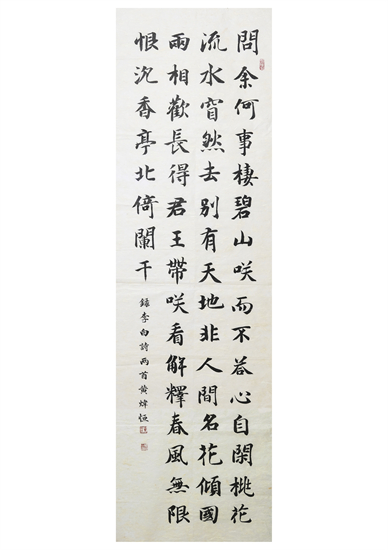 問余何事棲碧山咲而不荅心自閑桃花
流水窅然去別有天地非人間名花傾國
兩相歡長得君王帶咲看解釋春風無限
恨沉香亭北倚闌干
錄李白詩兩首黄煒恒